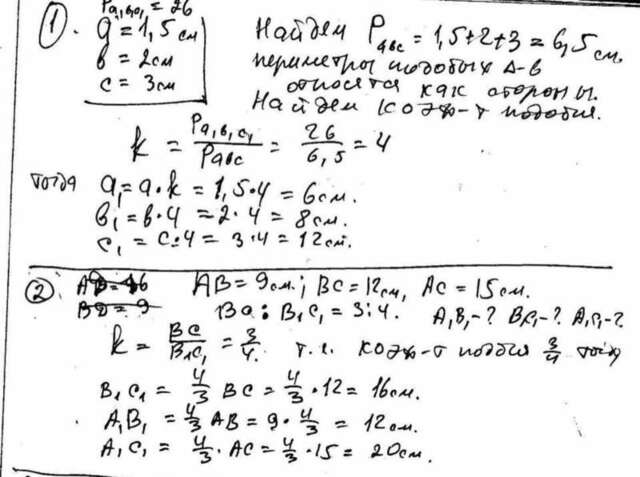 P a₁b₁c₁ = 26
① a = 1,5 см
в = 2 см
c = 3 см
Найдем P авс = 1,5 + 2 + 3 = 6,5 см.
периметры подобных Δ-в
относятся как стороны.
Найдем коэф-т подобия.
k = Pa₁b₁c₁ / Pавс = 26 / 6,5 = 4
тогда a₁ = a · k = 1,5 · 4 = 6 см.
в₁ = в · 4 = 2 · 4 = 8 см.
c₁ = c · 4 = 3 · 4 = 12 см.
② AB = 9 см.; BC = 12 см, AC = 15 см.
BC : B₁C₁ = 3 : 4. A₁B₁ - ? B₁C₁ - ? A₁C₁ - ?
k = BC / B₁C₁ = 3/4. т.е. коэф-т подбия 3/4 тогда
B₁C₁ = 4/3 BC = 4/3 · 12 = 16 см.
A₁B₁ = 4/3 AB = 9 · 4/3 = 12 см.
A₁C₁ = 4/3 · AC = 4/3 · 15 = 20 см.